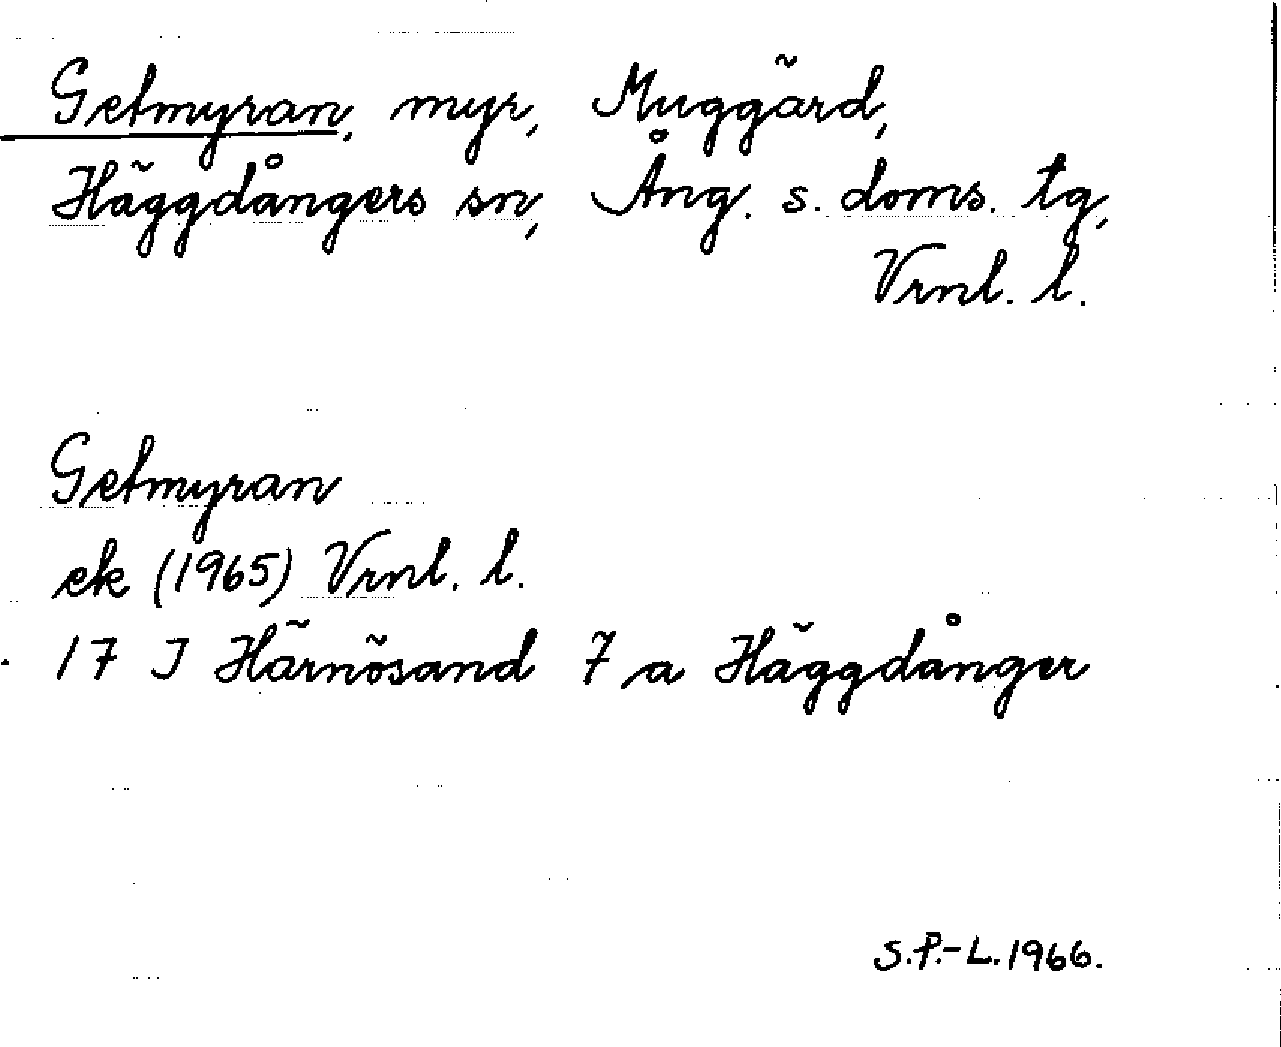 Getmyran, myr, Muggärd,
Häggdångers sn, Ång. s. doms. tg,
Vrnl. l.
Getmyran
ek (1965) Vrnl. l.
17 J Härnösand 7 a Häggdånger
S.P.-L. 1966.